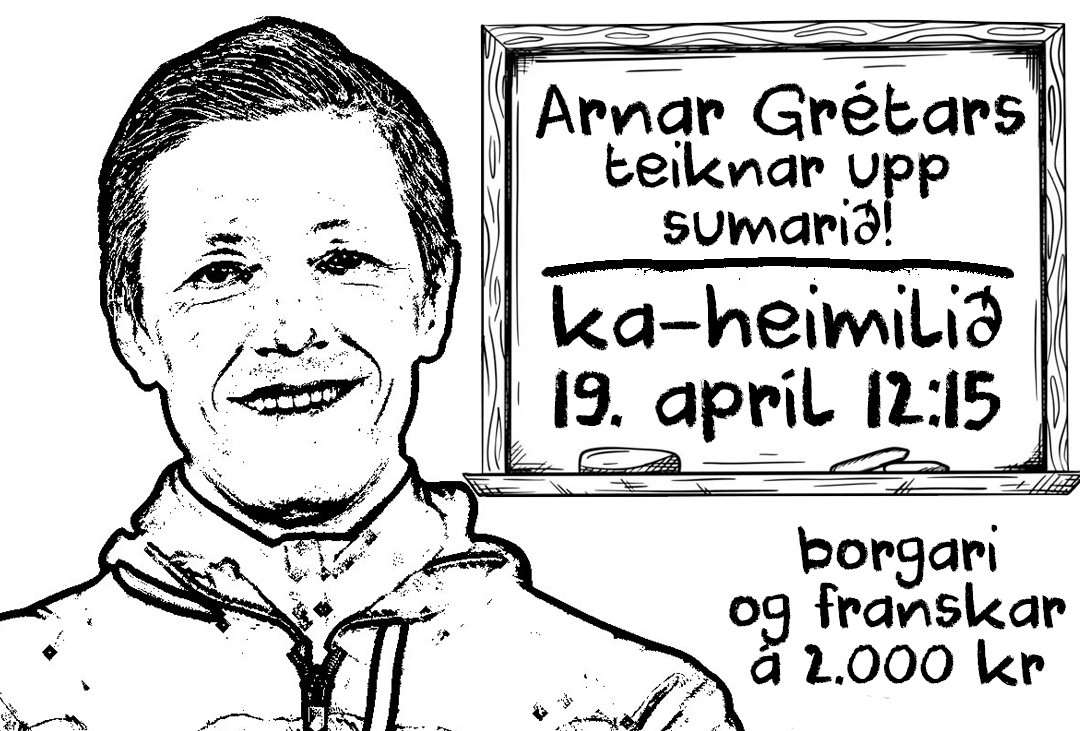 Arnar Grétars
teiknar upp
sumarið!
ka-heimilið
19. apríl 12:15
borgari
og franskar
á 2.000 kr